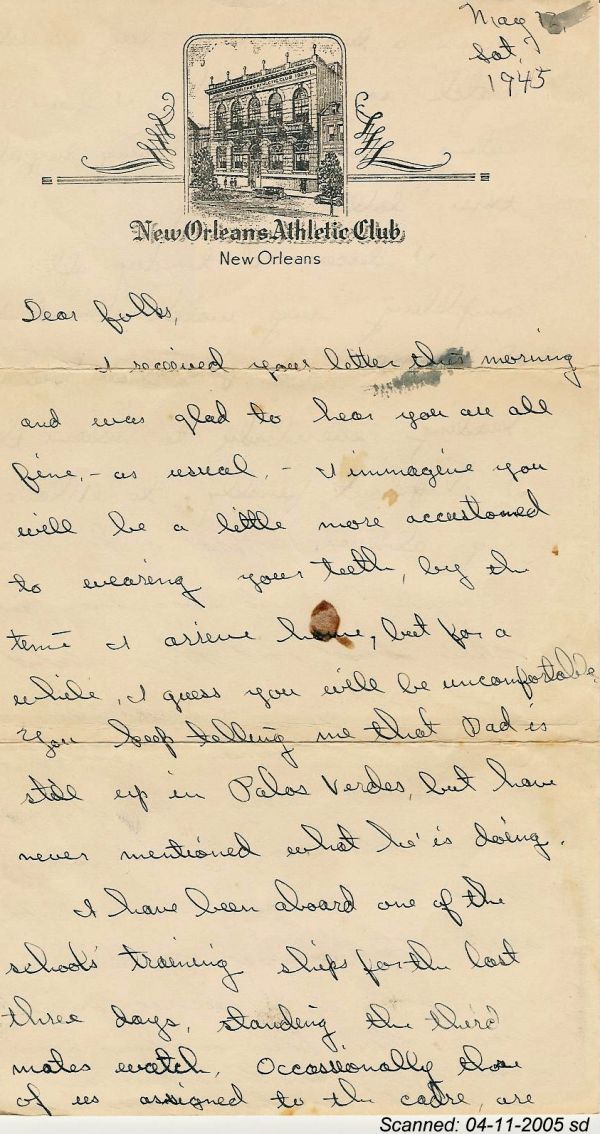 May
Sat,
1945
NEW ORLEANS ATHLETIC CLUB 1929
New Orleans Athletic Club
New Orleans
Dear folks,
I received your letter this morning
and was glad to hear you are all
fine, - as usual. - I immagine you
will be a little more accustomed
to wearing your teeth, by the
time I arrive home, but for a
while, I guess you will be uncomfortable.
You keep telling me that Dad is
still up in Palos Verdes, but have
never mentioned what he is doing.
I have been aboard one of the
schools' training ships for the last
three days, standing the third
mates watch. Occassionally those
of us assigned to the cadre, are
Scanned: 04-11-2005 sd